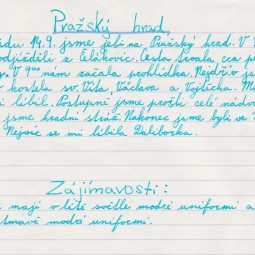 Pražský hrad
du 14.9. jsme jeli na Pražský hrad. V
odjížděli z Čelákovic. Cesta trvala cca
V 9⁰⁰ nám začala prohlídka. Nejdřív
kostela sv. Víta, Václava a Vojtěcha. M
líbil. Postupně jsme prošli celé nádvo
jsme hradní stráž. Nakonec jsme byli ve
Nejvíc se mi líbila Daliborka.
Zajímavosti:
mají v létě světle modré uniformy a
tmavě modré uniformi.